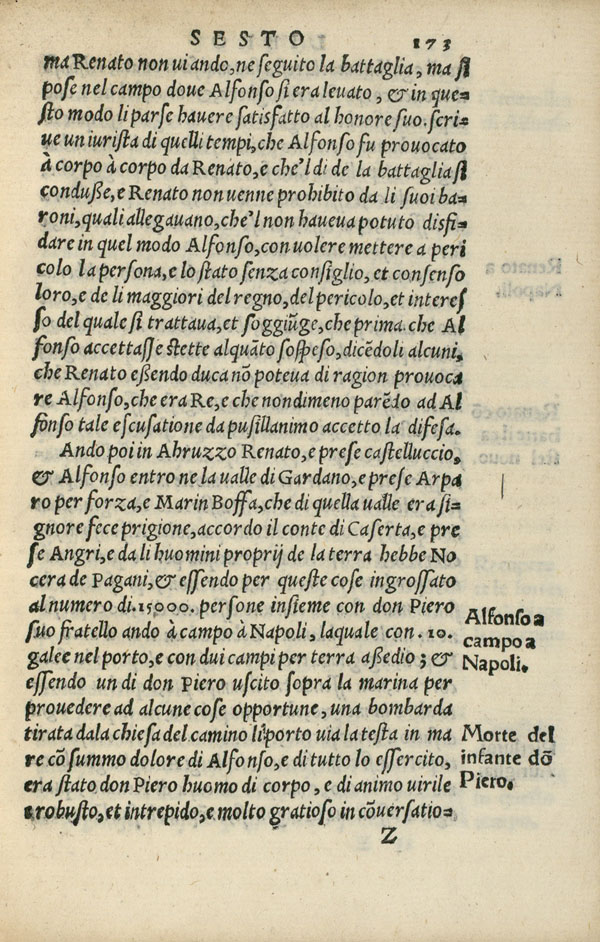 SESTO 173
ma Renato non vi ando, ne seguito la battaglia, ma si
pose nel campo doue Alfonso si era leuato, & in que-
sto modo li parse hauere satisfatto al honore suo. scri-
ue un iurista di quelli tempi, che Alfonso fu prouocato
à corpo à corpo da Renato, e che'l di de la battaglia si
condusse, e Renato non uenne prohibito da li suoi ba-
roni, quali allegauano, che'l non haueua potuto disfi-
dare in quel modo Alfonso, con uolere mettere a peri
colo la persona, e lo stato senza consiglio, et consenso
loro, e de li maggiori del regno, del pericolo, et interes
so del quale si trattaua, et soggiũge, che prima che Al
fonso accettasse stette alquãto sospeso, dicẽdoli alcuni,
che Renato essendo duca nõ poteua di ragion prouoca
re Alfonso, che era Re, e che nondimeno parẽdo ad Al
fonso tale escusatione da pusillanimo accetto la difesa.
Ando poi in Abruzzo Renato, e prese castelluccio,
& Alfonso entro ne la ualle di Gardano, e prese Arpa
ro per forza, e Marin Boffa, che di quella ualle era si-
gnore fece prigione, accordo il conte di Caserta, e pre
se Angri, e da li huomini proprij de la terra hebbe No
cera de Pagani, & essendo per queste cose ingrossato
al numero di .15000. persone insieme con don Piero
suo fratello ando à campo à Napoli, laquale con .10.
galee nel porto, e con dui campi per terra assedio; &
essendo un di don Piero uscito sopra la marina per
prouedere ad alcune cose opportune, una bombarda
tirata dala chiesa del camino li porto uia la testa in ma
re cõ summo dolore di Alfonso, e di tutto lo essercito,
era stato don Piero huomo di corpo, e di animo uirile
e robusto, et intrepido, e molto gratioso in cõuersatio-
Z
Alfonso a
campo a
Napoli.
Morte del
infante dõ
Piero.